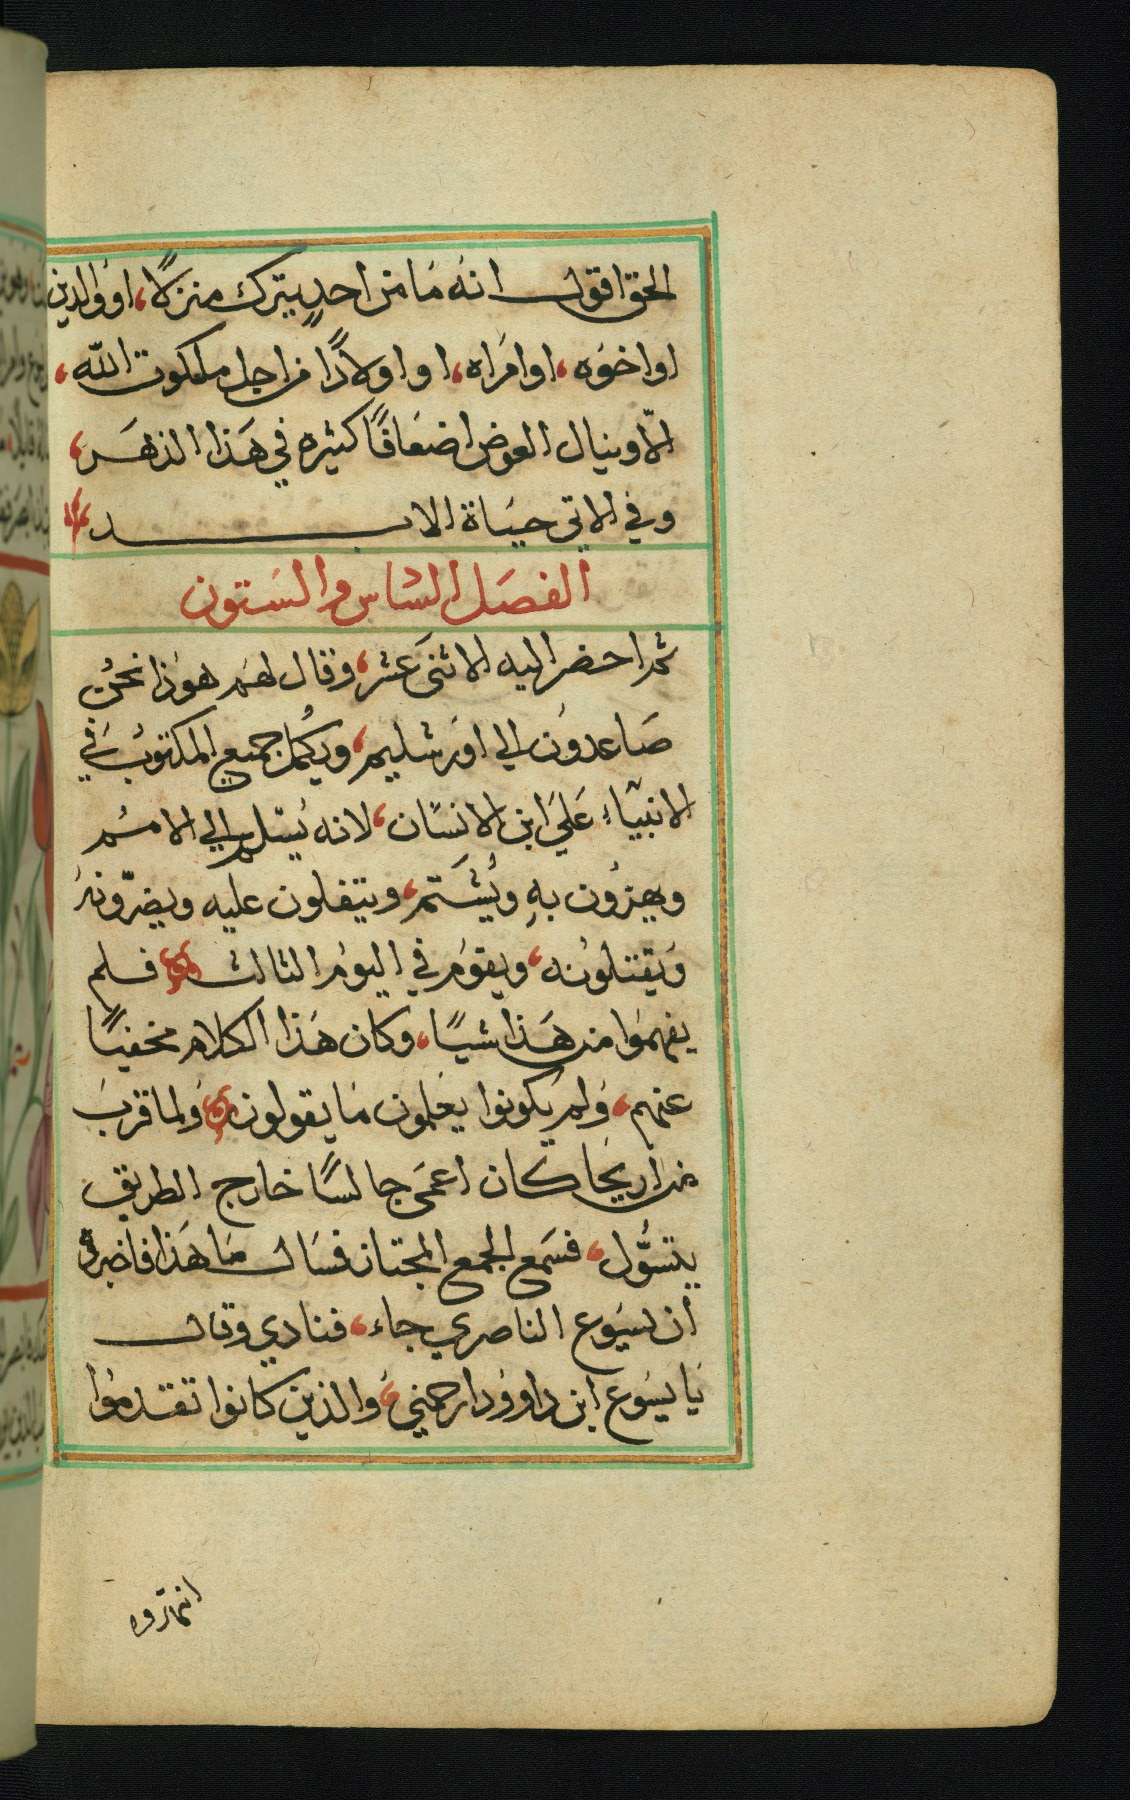 الحق اقول انه ما من احدٍ يترك منزلًا، او والدين
او اخوه، او امراه، او اولادًا من اجل ملكوت الله،
الّا وينال العوض اضعافًا كثيره في هذا الدهر،
وفي الاتي حياة الابد
الفصل الساس والستون
ثم احضر اليه الاثنى عشر، وقال لهم هوذا نحن
صاعدون الي اورشليم، ويكمل جميع المكتوب في
الانبياء علي ابن الانسان، لانه يُسلم الي الامم
ويهزون بهِ ويُشتم، ويتفلون عليه ويضرّونه
ويقتلونه، ويقوم في اليوم الثالث فلم
يفهموا من هذا شيًا، وكان هذا الكلام مخفيًا
عنهم، ولم يكونوا يعلمون ما يقولون ولما قرب
من اريحا كان اعمى جالسًا خارج الطريق
يتسوّل، فسمع الجمع المجتاز فسال ما هذا فاخبروه
ان يسوع الناصري جاء، فنادي وقال
يا يسوع ابن داوود ارحمني، والذين كانوا تقدموا
انتهزوه